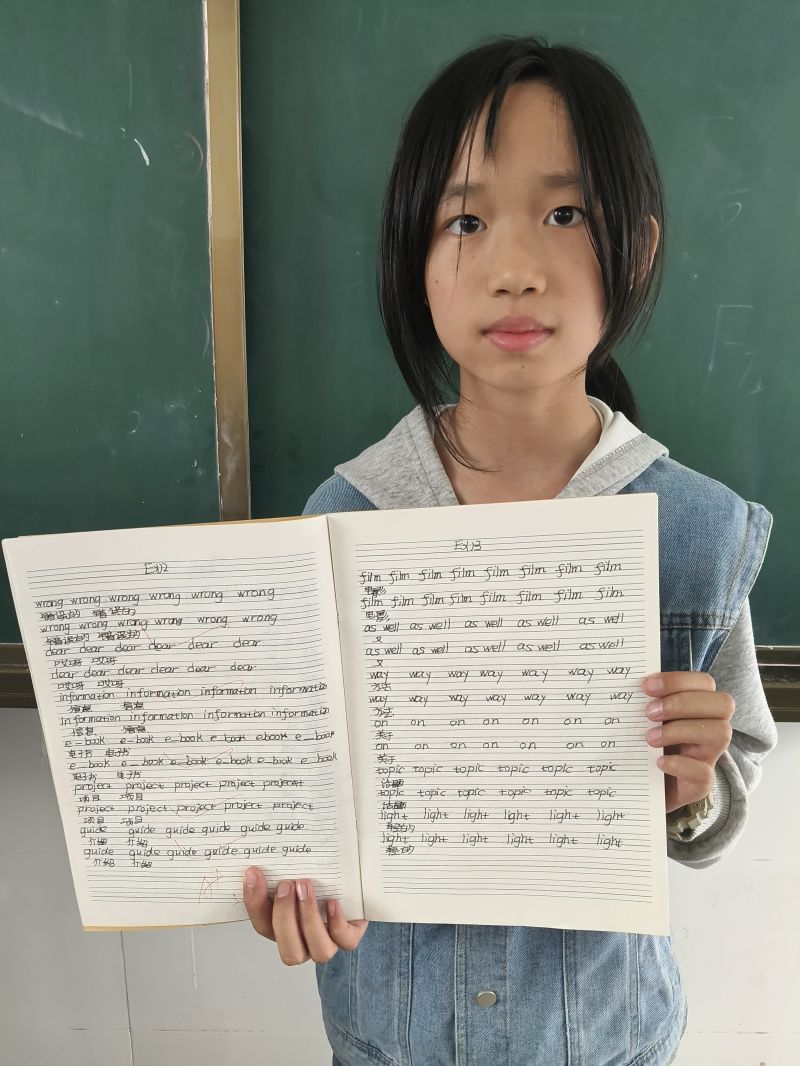 Ex12
wrong wrong wrong wrong wrong wrong
错误的 错误的
wrong wrong wrong wrong wrong wrong
错误的 错误的
dear dear dear dear dear dear
哎呀 哎呀
dear dear dear dear dear dear
哎呀 哎呀
information information information information
信息 信息
information information information information
信息 信息
e-book e-book e-book e-book ebook e-book
电子书 电子书
e-book e-book e-book e-book e-book e-book
电子书 电子书
project project project project project
项目 项目
project project project project project
项目 项目
guide guide guide guide guide guide
介绍 介绍
guide guide guide guide guide guide
介绍 介绍
A+
Ex13
film film film film film film film film
电影
film film film film film film film film
电影
as well as well as well as well as well
又
as well as well as well as well as well
又
way way way way way way way
方法
way way way way way way way
方法
on on on on on on
关于
on on on on on on
关于
topic topic topic topic topic topic
话题
topic topic topic topic topic topic
话题
light light light light light light
轻的
light light light light light light
轻的